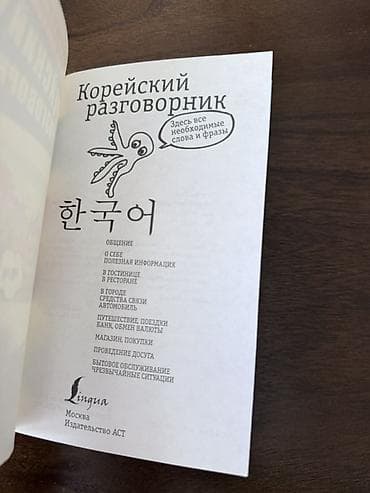 Корейский
разговорник
Здесь все
необходимые
слова и фразы
한국어
ОБЩЕНИЕ
О СЕБЕ
ПОЛЕЗНАЯ ИНФОРМАЦИЯ
В ГОСТИНИЦЕ
В РЕСТОРАНЕ
В ГОРОДЕ
СРЕДСТВА СВЯЗИ
АВТОМОБИЛЬ
ПУТЕШЕСТВИЕ, ПОЕЗДКИ
БАНК, ОБМЕН ВАЛЮТЫ
МАГАЗИН, ПОКУПКИ
ПРОВЕДЕНИЕ ДОСУГА
БЫТОВОЕ ОБСЛУЖИВАНИЕ
ЧРЕЗВЫЧАЙНЫЕ СИТУАЦИИ
Lingua
Москва
Издательство АСТ